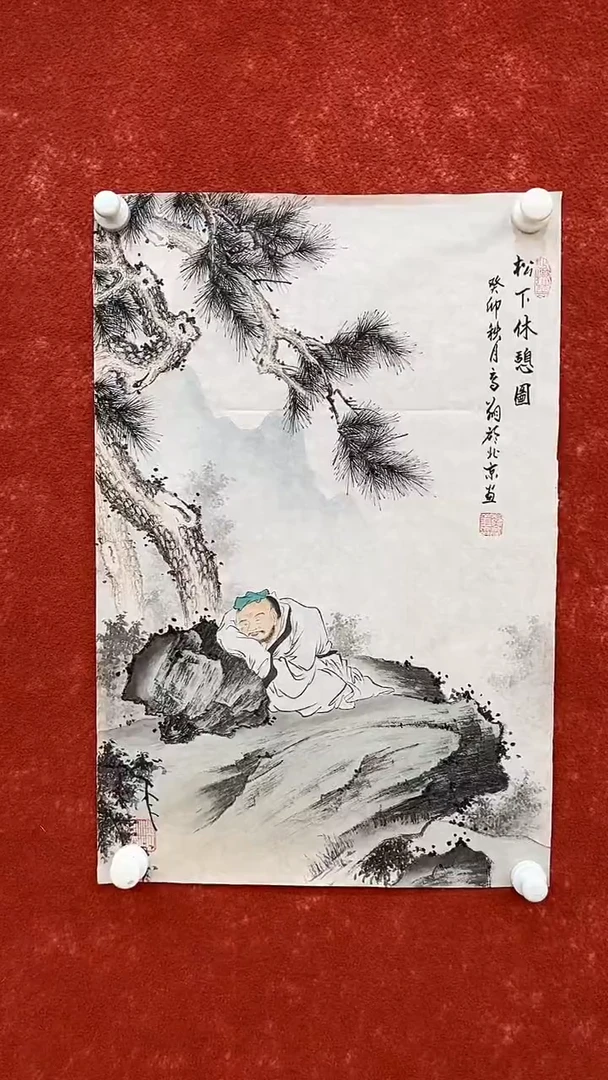 松下休憩圖
癸卯秋月高翔於北京畫